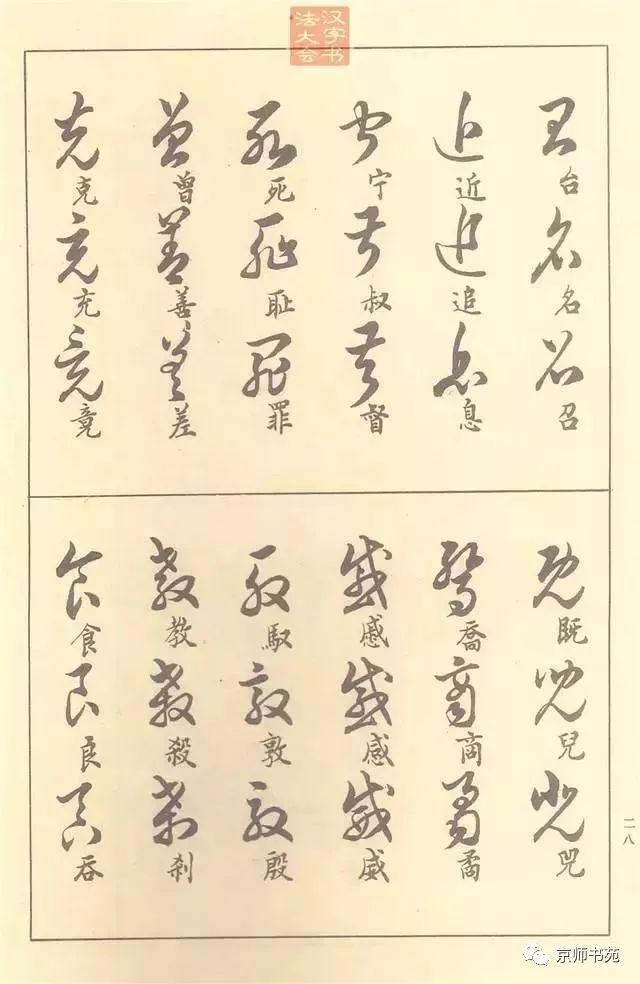 汉字书
法大会
台名召
近追息
宁叔督
死耻罪
曾善差
克充竟
既兒
喬商矞
戚感威
馭敦殷
教殺刹
食良吞
二八
京师书苑